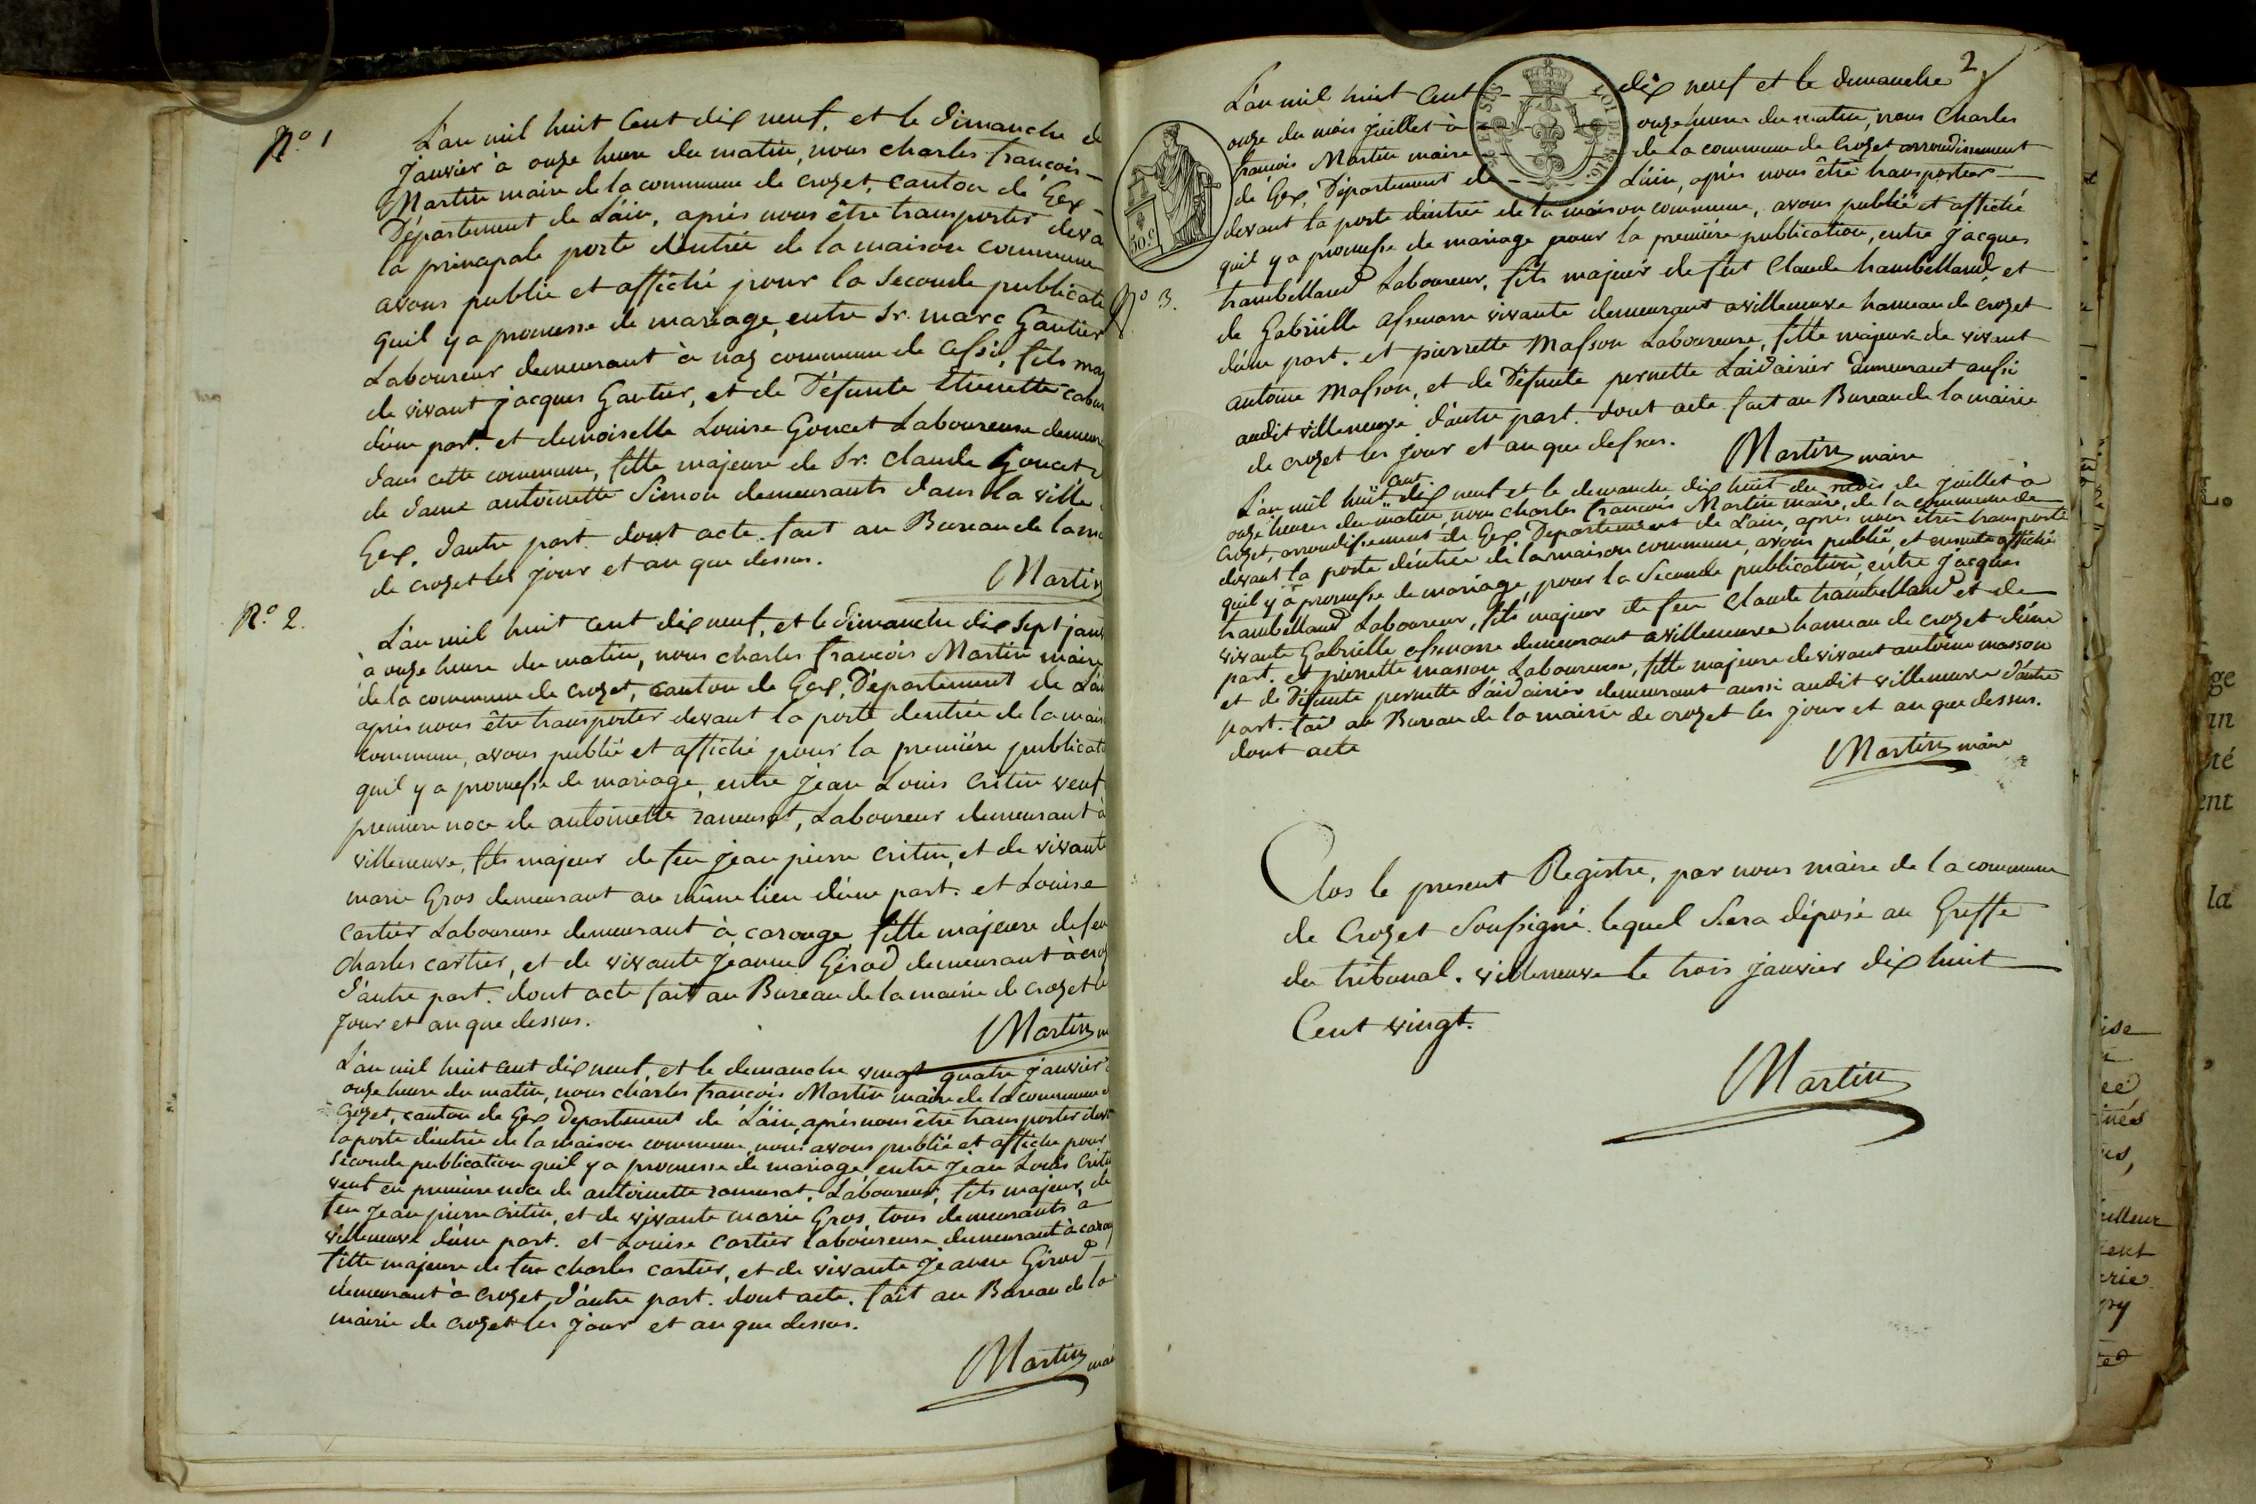 N.o 1
L'an mil huit Cent dix neuf, et le dimanche
Janvier à onze heure du matin, nous charles françois
Martin maire de la commune de crozet, canton de Gex
Département de L'ain, après nous être transporter deva
la principale porte d'entrée de la maison commune
avons publié et affiché pour la seconde publicati
quil y a promesse de mariage, entre Sr. marc Gautier
Laboureur demeurant à naz commune de cessi, fils maj
de vivant jacques Gautier, et de Défunte Etienette
d'une part. et demoiselle Louise Goncet Laboureuse demeur
dans cette commune, fille majeure de Sr. claude Goncet
de dame antoinette Simon demeurants dans la ville
Gex, d'autre part. dont acte fait au Bureau de la m
de crozet les jour et an que dessus.
Martin
N.o 2.
L'an mil huit cent dix neuf, et le dimanche dix sept janv
à onze heure du matin, nous charles francois Martin maire
de la commune de crozet, canton de Gex, Département de L'ain
après nous être transporter devant la porte dentrée de la mais
commune, avons publié et affiché pour la première publicati
quil y a promesse de mariage, entre jean Louis critin veuf
premiere noce de antoinette ramusat, Laboureur demeurant à
villeneuve, fils majeur de feu jean pierre critin, et de vivante
marie Gros demeurant au même lieu d'une part. et Louise
cartier Laboureuse demeurant à carouge, fille majeure de feu
charles cartier, et de vivante jeanne Girod demeurant à croz
d'autre part. dont acte fait au Bureau de la mairie de crozet le
jour et an que dessus.
Martin m
L'an mil huit cent dix neuf, et le dimanche vingt quatre janvier
onze heure du matin, nous charles francois Martin maire de la commune d
Crozet, canton de Gex Département de L'ain, après nous être transporter deva
la porte d'entrée de la maison commune, nous avons publié et affiché pour
seconde publication quil y a promesse de mariage entre jean Louis Criti
veuf en premiere noce de antoinette ramusat, Laboureur, fils majeur, de
feu jean pierre critin, et de vivante marie Gros, tous demeurants à
villeneuve d'une part. et Louise cartier laboureuse demeurant à caroug
fille majeure de feu charles cartier, et de vivante jeanne Girod
demeurant à crozet d'autre part. dont acte. fait au Bureau de la
mairie de crozet les jour et an que dessus.
Martin mai
2
L'an mil huit Cent dix neuf et le dimanche
onze du mois juillet à onze heures du matin, nous Charles
françois Martin maire de la commune de Crozet arrondissement
de Gex, Département de L'ain, après nous être transporter
devant la porte d'entrée de la maison commune, avons publié et affiché
quil y a promesse de mariage pour la première publication, entre jacques
N.o 3.
trambelland Laboureur, fils majeur de fut Claude trambelland et
de Gabrielle assenare vivante demeurant a villeneuve hameau de crozet
d'une part. et pierrette Masson Laboureuse, fille majeure de vivant
antoine Masson, et de Défunte pernette Laidainier demeurant aussi
audit villeneuve d'autre part. dont acte fait au Bureau de la mairie
de crozet les jour et an que dessus.
Martin maire
L'an mil huit cent dix neuf et le dimanche dix huit du mois de juillet à
onze heures du matin, nous charles francois Martin maire, de la commune de
Crozet, arrondissement de Gex, Département de L'ain, après nous être transporté
devant la porte d'entrée de la maison commune, avons publié, et ensuite affiché
quil y a promesse de mariage, pour la seconde publication, entre jacques
trambelland Laboureur, fils majeur de feu claude trambelland et de
vivante Gabrielle assenare demeurant a villeneuve hameau de crozet d'une
part. et pierrette masson Laboureuse, fille majeure de vivant antoine masson
et de Défunte pernette Laidainier demeurant aussi audit villeneuve d'autre
part. fait au Bureau de la mairie de crozet les jour et an que dessus.
dont acte
Martin maire
Clos le present Registre, par nous maire de la commune
de Crozet Soussigné. lequel Sera déposé au Greffe
du tribunal. villeneuve le trois janvier dix huit
Cent vingt.
Martin